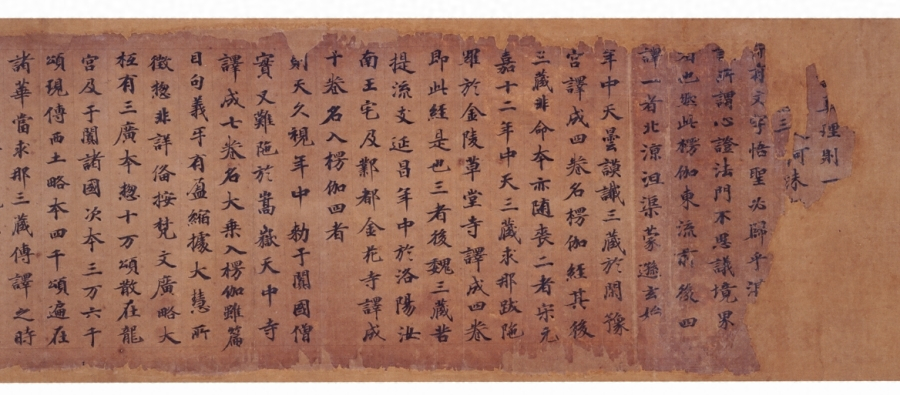 理則一
可殊
三
文字悟聖必歸乎
所謂心證法門不思議境界
也此楞伽東流前後四
譯一者北涼沮渠蒙遜玄始
年中天曇謨讖三藏於閑豫
宮譯成四卷名楞伽經其後
三藏非命本亦随喪二者宋元
嘉十二年中天三藏求那跋陁
羅於金陵草堂寺譯成四卷
即此經是也三者後魏三藏菩
提流支延昌年中於洛陽汝
南王宅及鄴都金花寺譯成
十卷名入楞伽四者
則天久視年中勑于闐國僧
實叉難陁於嵩嶽天中寺
譯成七卷名大乗入楞伽雖篇
目句義牙有盈縮據大慧所
徴惣非詳俻按梵文廣略大
柱有三廣本惣十万頌散在龍
宮及于闐諸國次本三万六千
頌現傳西土略本四千頌遍在
諸華當求那三藏傳譯之時